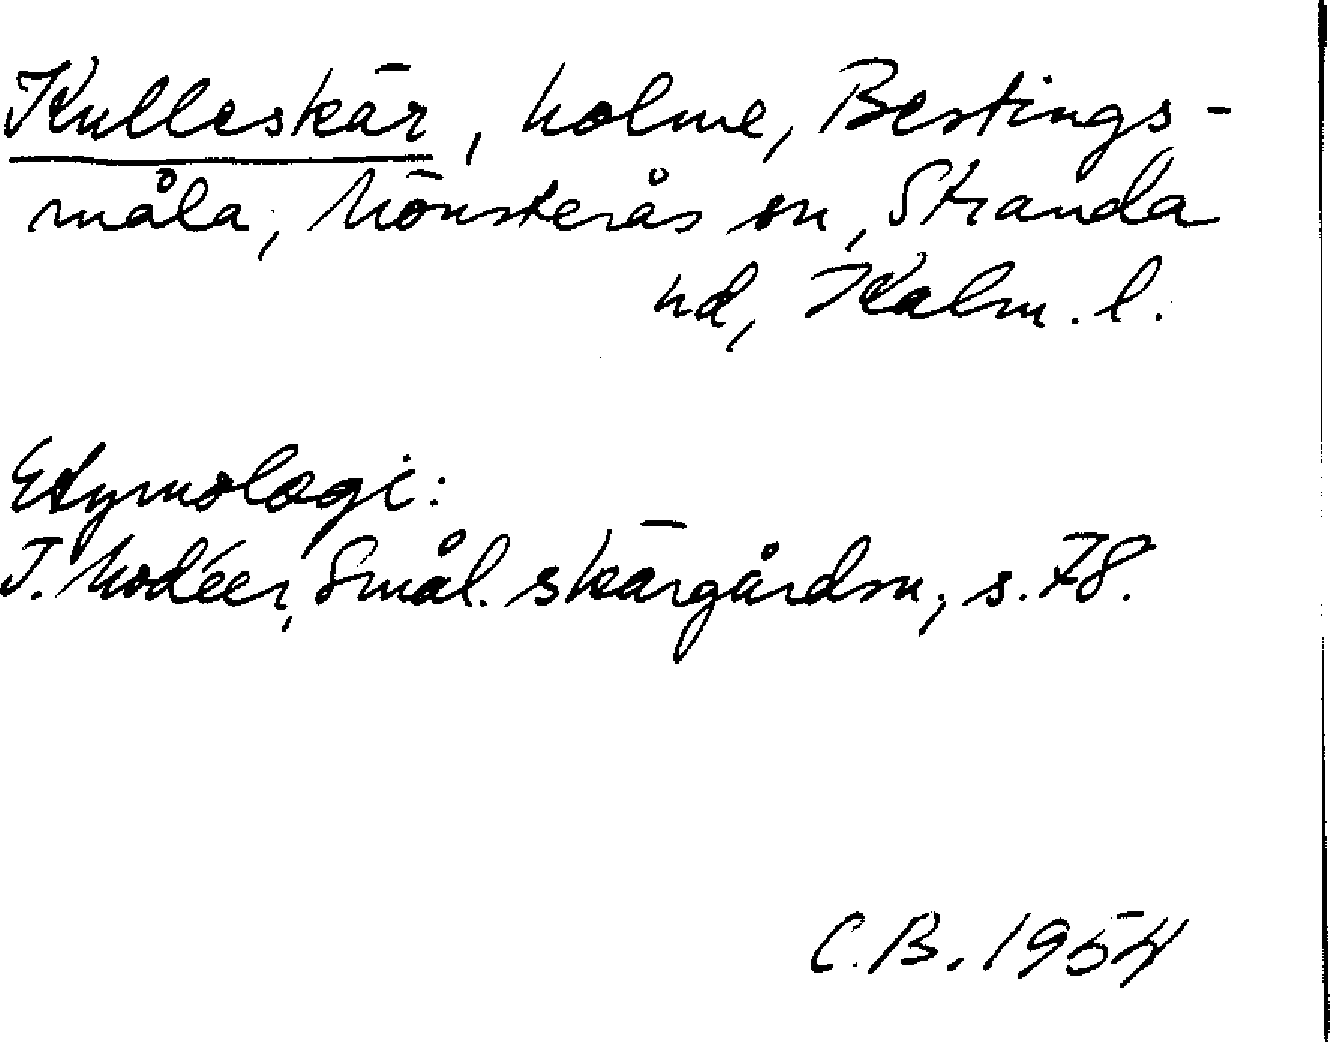 Kulleskär, holme, Bertings-
måla, Mönsterås sn, Stranda
hd, Kalm. l.
Etymologi:
I. Modéer, Smål. skärgårdsn, s. 78.
C.B. 1954